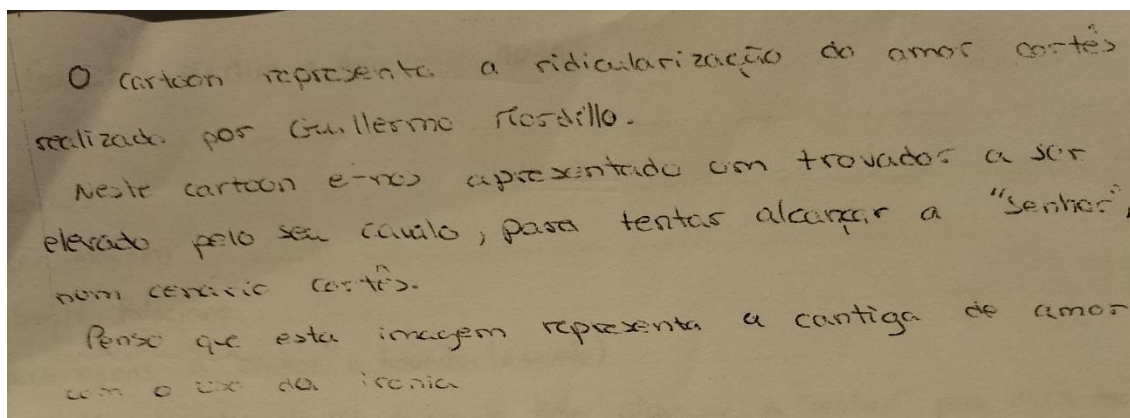 O cartoon representa a ridicularização do amor cortês
realizada por Guillermo Mordillo.
Neste cartoon e-nos apresentado um trovador a ser
elevado pelo seu cavalo, para tentar alcançar a "senhor",
num cenário cortês.
Penso que esta imagem representa a cantiga de amor
com o uso da ironia